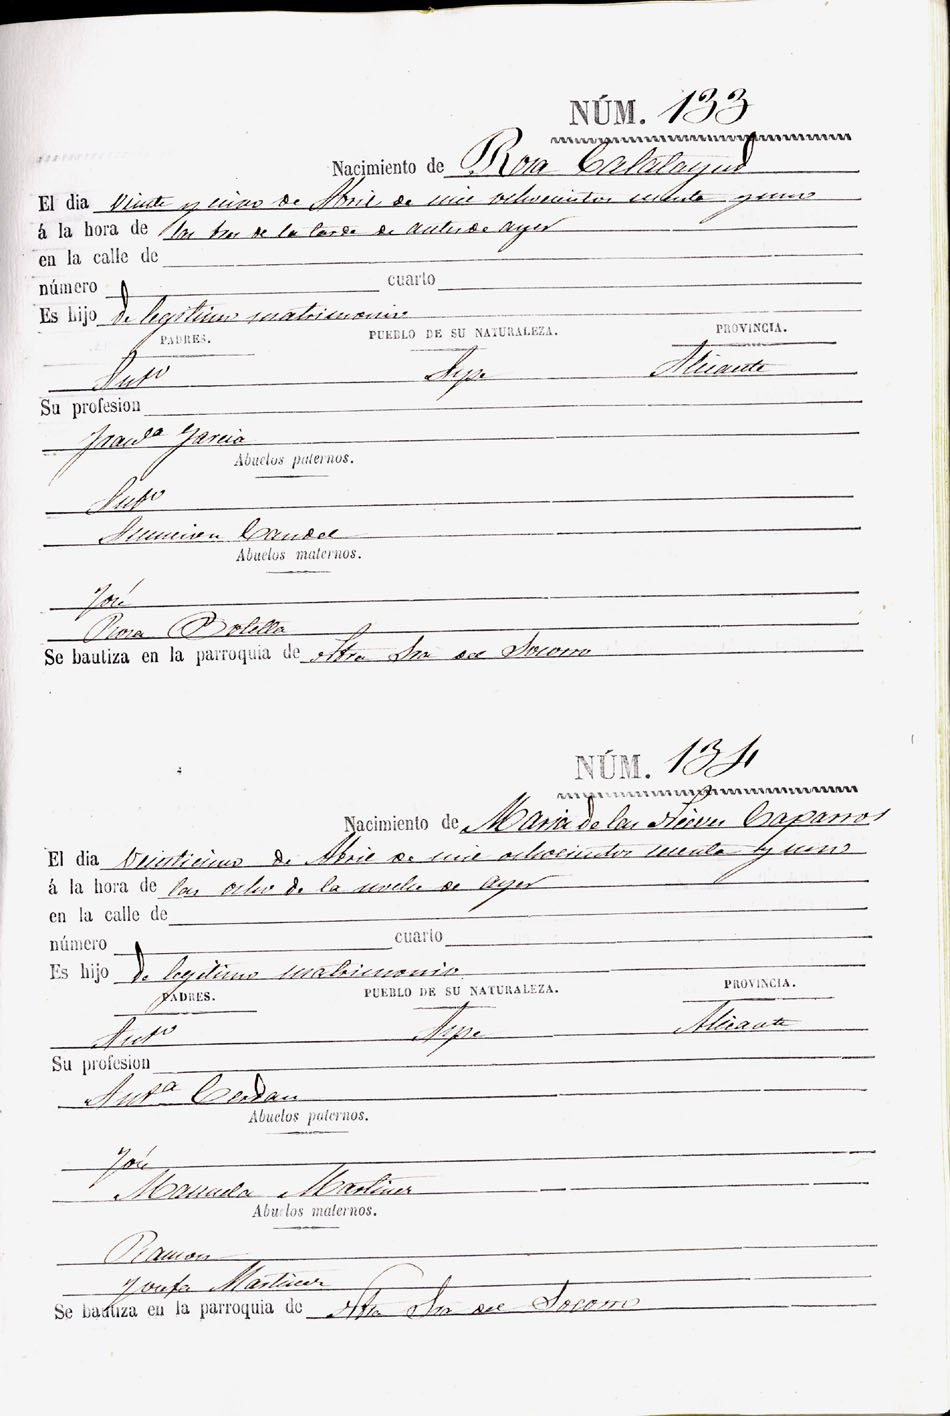 NÚM. 133
Nacimiento de Rosa Calatayud
El dia veinte y cinco de Abril de mil ochocientos setenta y uno
á la hora de las tres de la tarde de antes de ayer
en la calle de
número cuarto
Es hijo de legitimo matrimonio
PADRES. PUEBLO DE SU NATURALEZA. PROVINCIA.
Antº Aspe Alicante
Su profesion
Franᶜª Garcia
Abuelos paternos.
Antº
Asuncion Candel
Abuelos maternos.
José
Rosa Botella
Se bautiza en la parroquia de Ntra Sra del Socorro
NÚM. 134
Nacimiento de Maria de las Nieves Caparros
El dia veinticinco de Abril de mil ochocientos setenta y uno
á la hora de las ocho de la noche de ayer
en la calle de
número cuarto
Es hijo de legitimo matrimonio
PADRES. PUEBLO DE SU NATURALEZA. PROVINCIA.
Antº Aspe Alicante
Su profesion
Antª Cerdan
Abuelos paternos.
José
Manuela Martinez
Abuelos maternos.
Ramon
Josefa Martinez
Se bautiza en la parroquia de Ntra Sra del Socorro